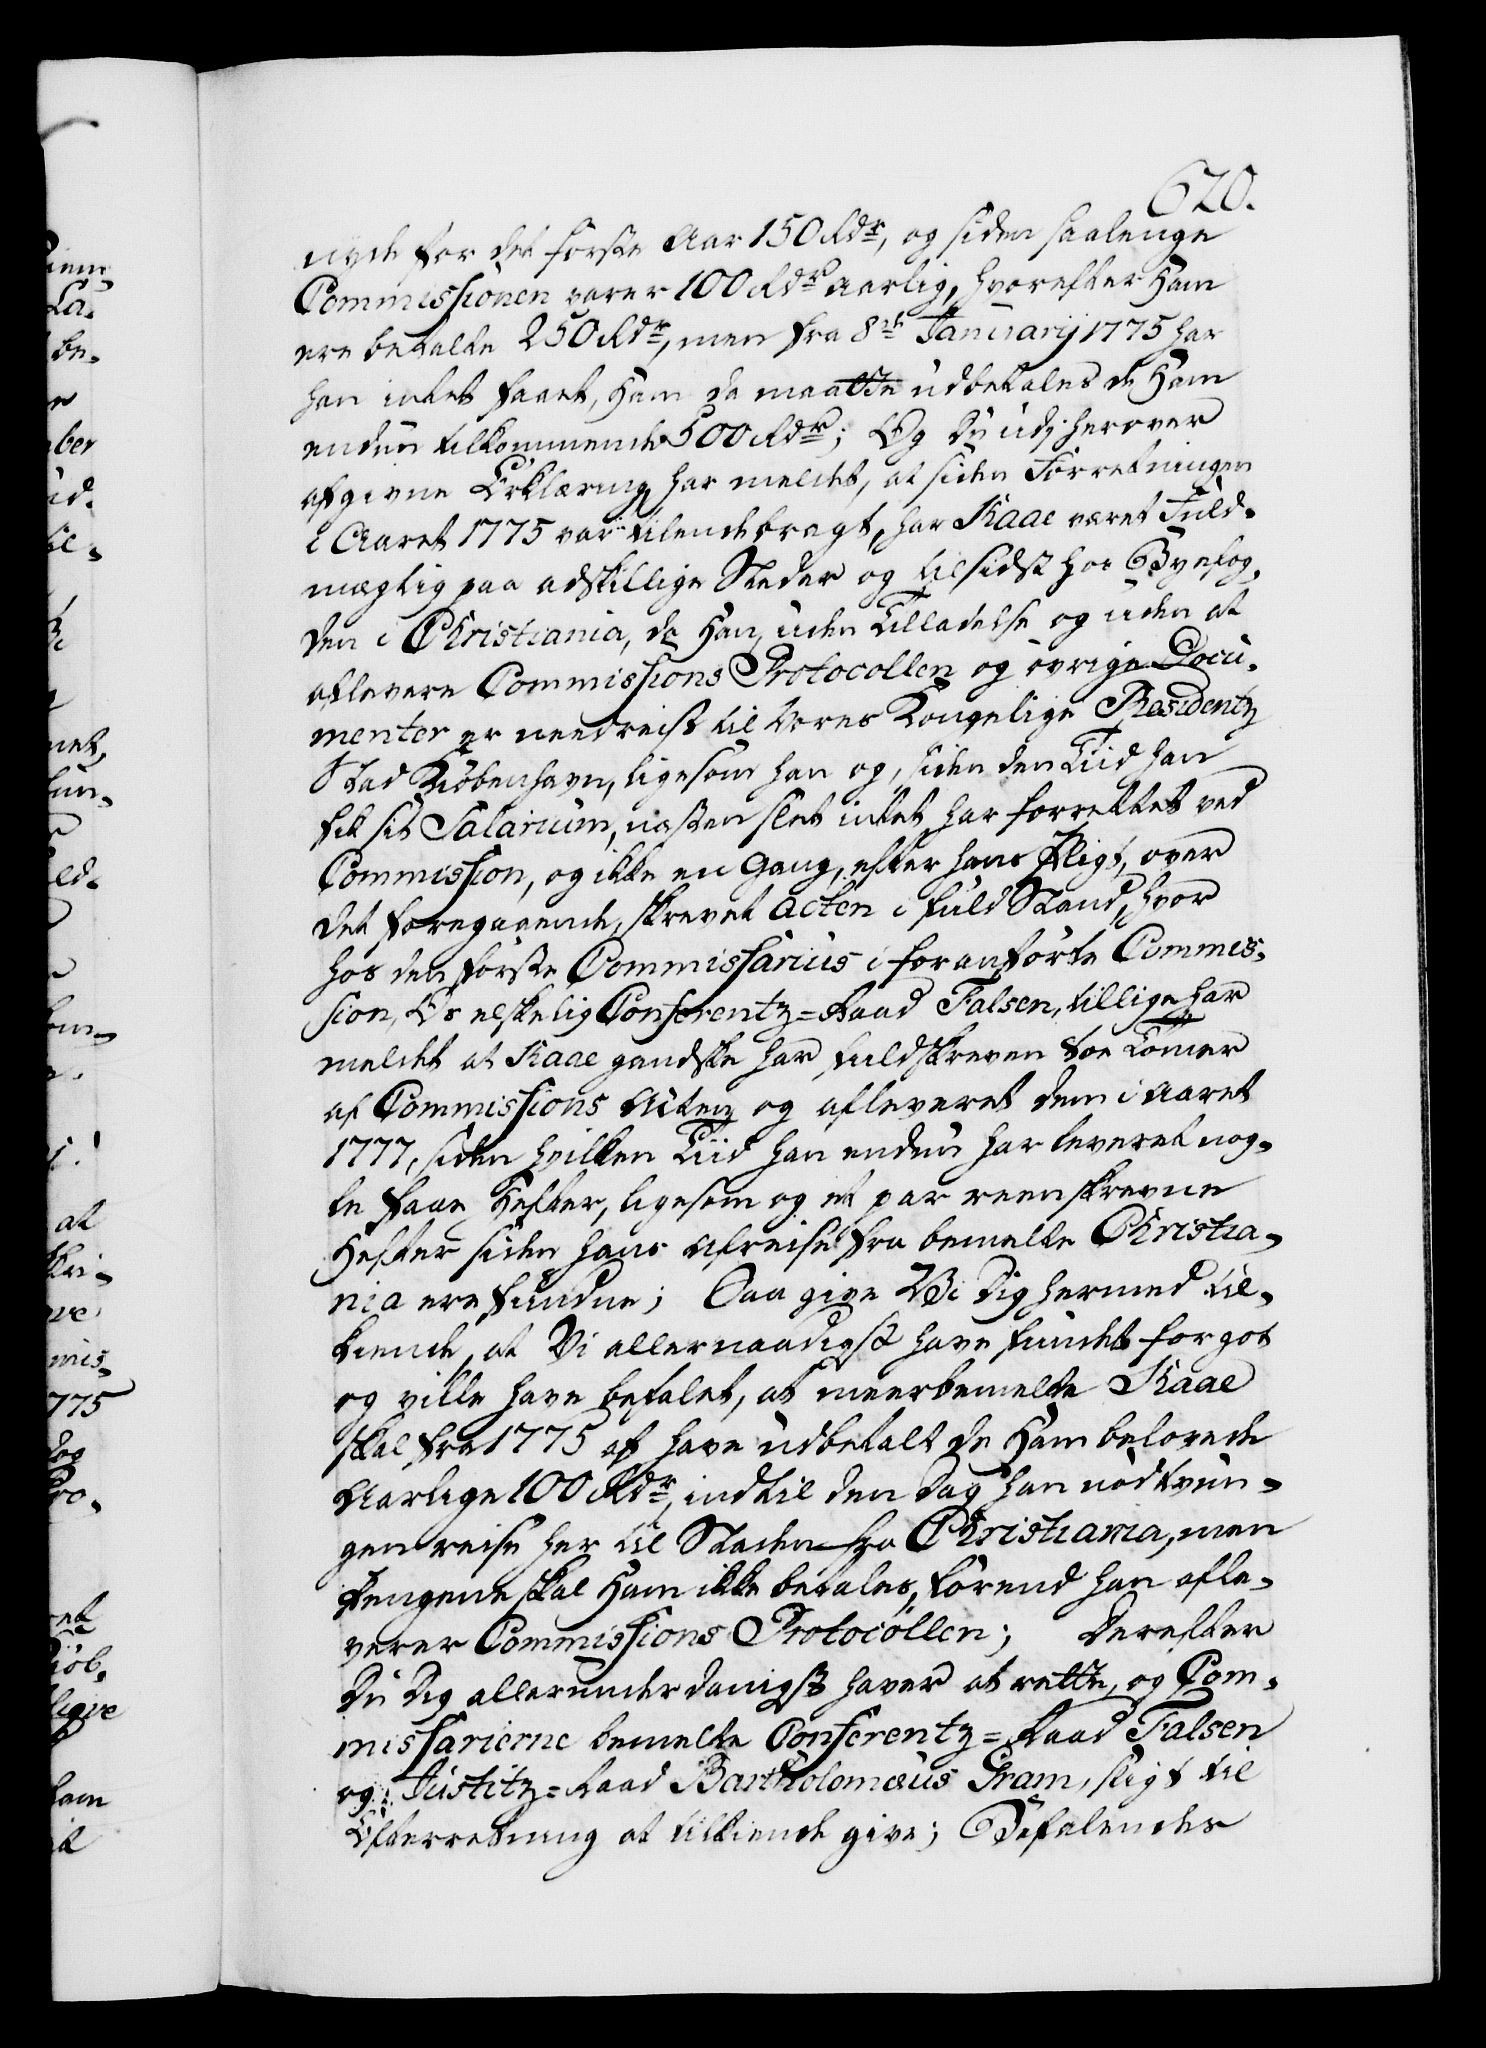 620.
nyde for det første Aar 150 Rdr, og siden saalenge
Commissionen varer 100 Rdr aarlig, hvorefter Ham
ere betalte 250 Rdr, men fra 8de Januarij 1775 har
han intet faaet, Ham da maatte udbetales de Ham
endnu tilkommende 500 Rdr; Og Du udj herover
afgivne Erklæring har meldet, at siden Forretningen
i Aaret 1775 var tilendebragt, har Kaae været Fuld-
mægtig paa adskillige Steder og tilsidst hos Byefog-
den i Christiania, da Han, uden Tilladelse og uden at
aflevere Commissions Protocollen og øvrige Docu-
menter er needreist til Vores Kongelige Residentz
Stad Kiöbenhavn, ligesom han og, siden den Tiid han
fik sit Salarium, næsten slet intet har forrettet ved
Commission, og ikke en Gang, efter hans Pligt, over
det foregaaende, skrevet Acten i fuld Stand, hvor
hos den første Commissarius i foranførte Commis-
sion, Os elskelig Conferentz=Raad Falsen, tillige har
meldet at Kaae gandske har fuldskreven toe Tomer
af Commissions Acten og afleveret dem i Aaret
1777, siden hvilken Tiid han endnu har leveret nog-
le faae Hefter, ligesom og et par reenskrevne
Hefter siden hans Afreise fra bemelte Christia-
nia ere fundne; Saa give Vi Dig hermed til-
kiende, at Vi allernaadigst have fundet for got
og ville have befalet, at meerbemelte Kaae
skal fra 1775 af have udbetalt de Ham belovede
Aarlige 100 Rdr, indtil den Dag han nødtvun-
gen reise her til Staden fra Christiania, men
Pengene skal Ham ikke betales, førend han afle-
verer Commissions Protocollen; Derefter
Du Dig allerunderdanigst haver at rette, og Com-
missarierne bemelte Conferentz=Raad Falsen
og Justitz=Raad Bartholomæus Gram, sligt til
Efterretning at tilkiende give; Befalendes